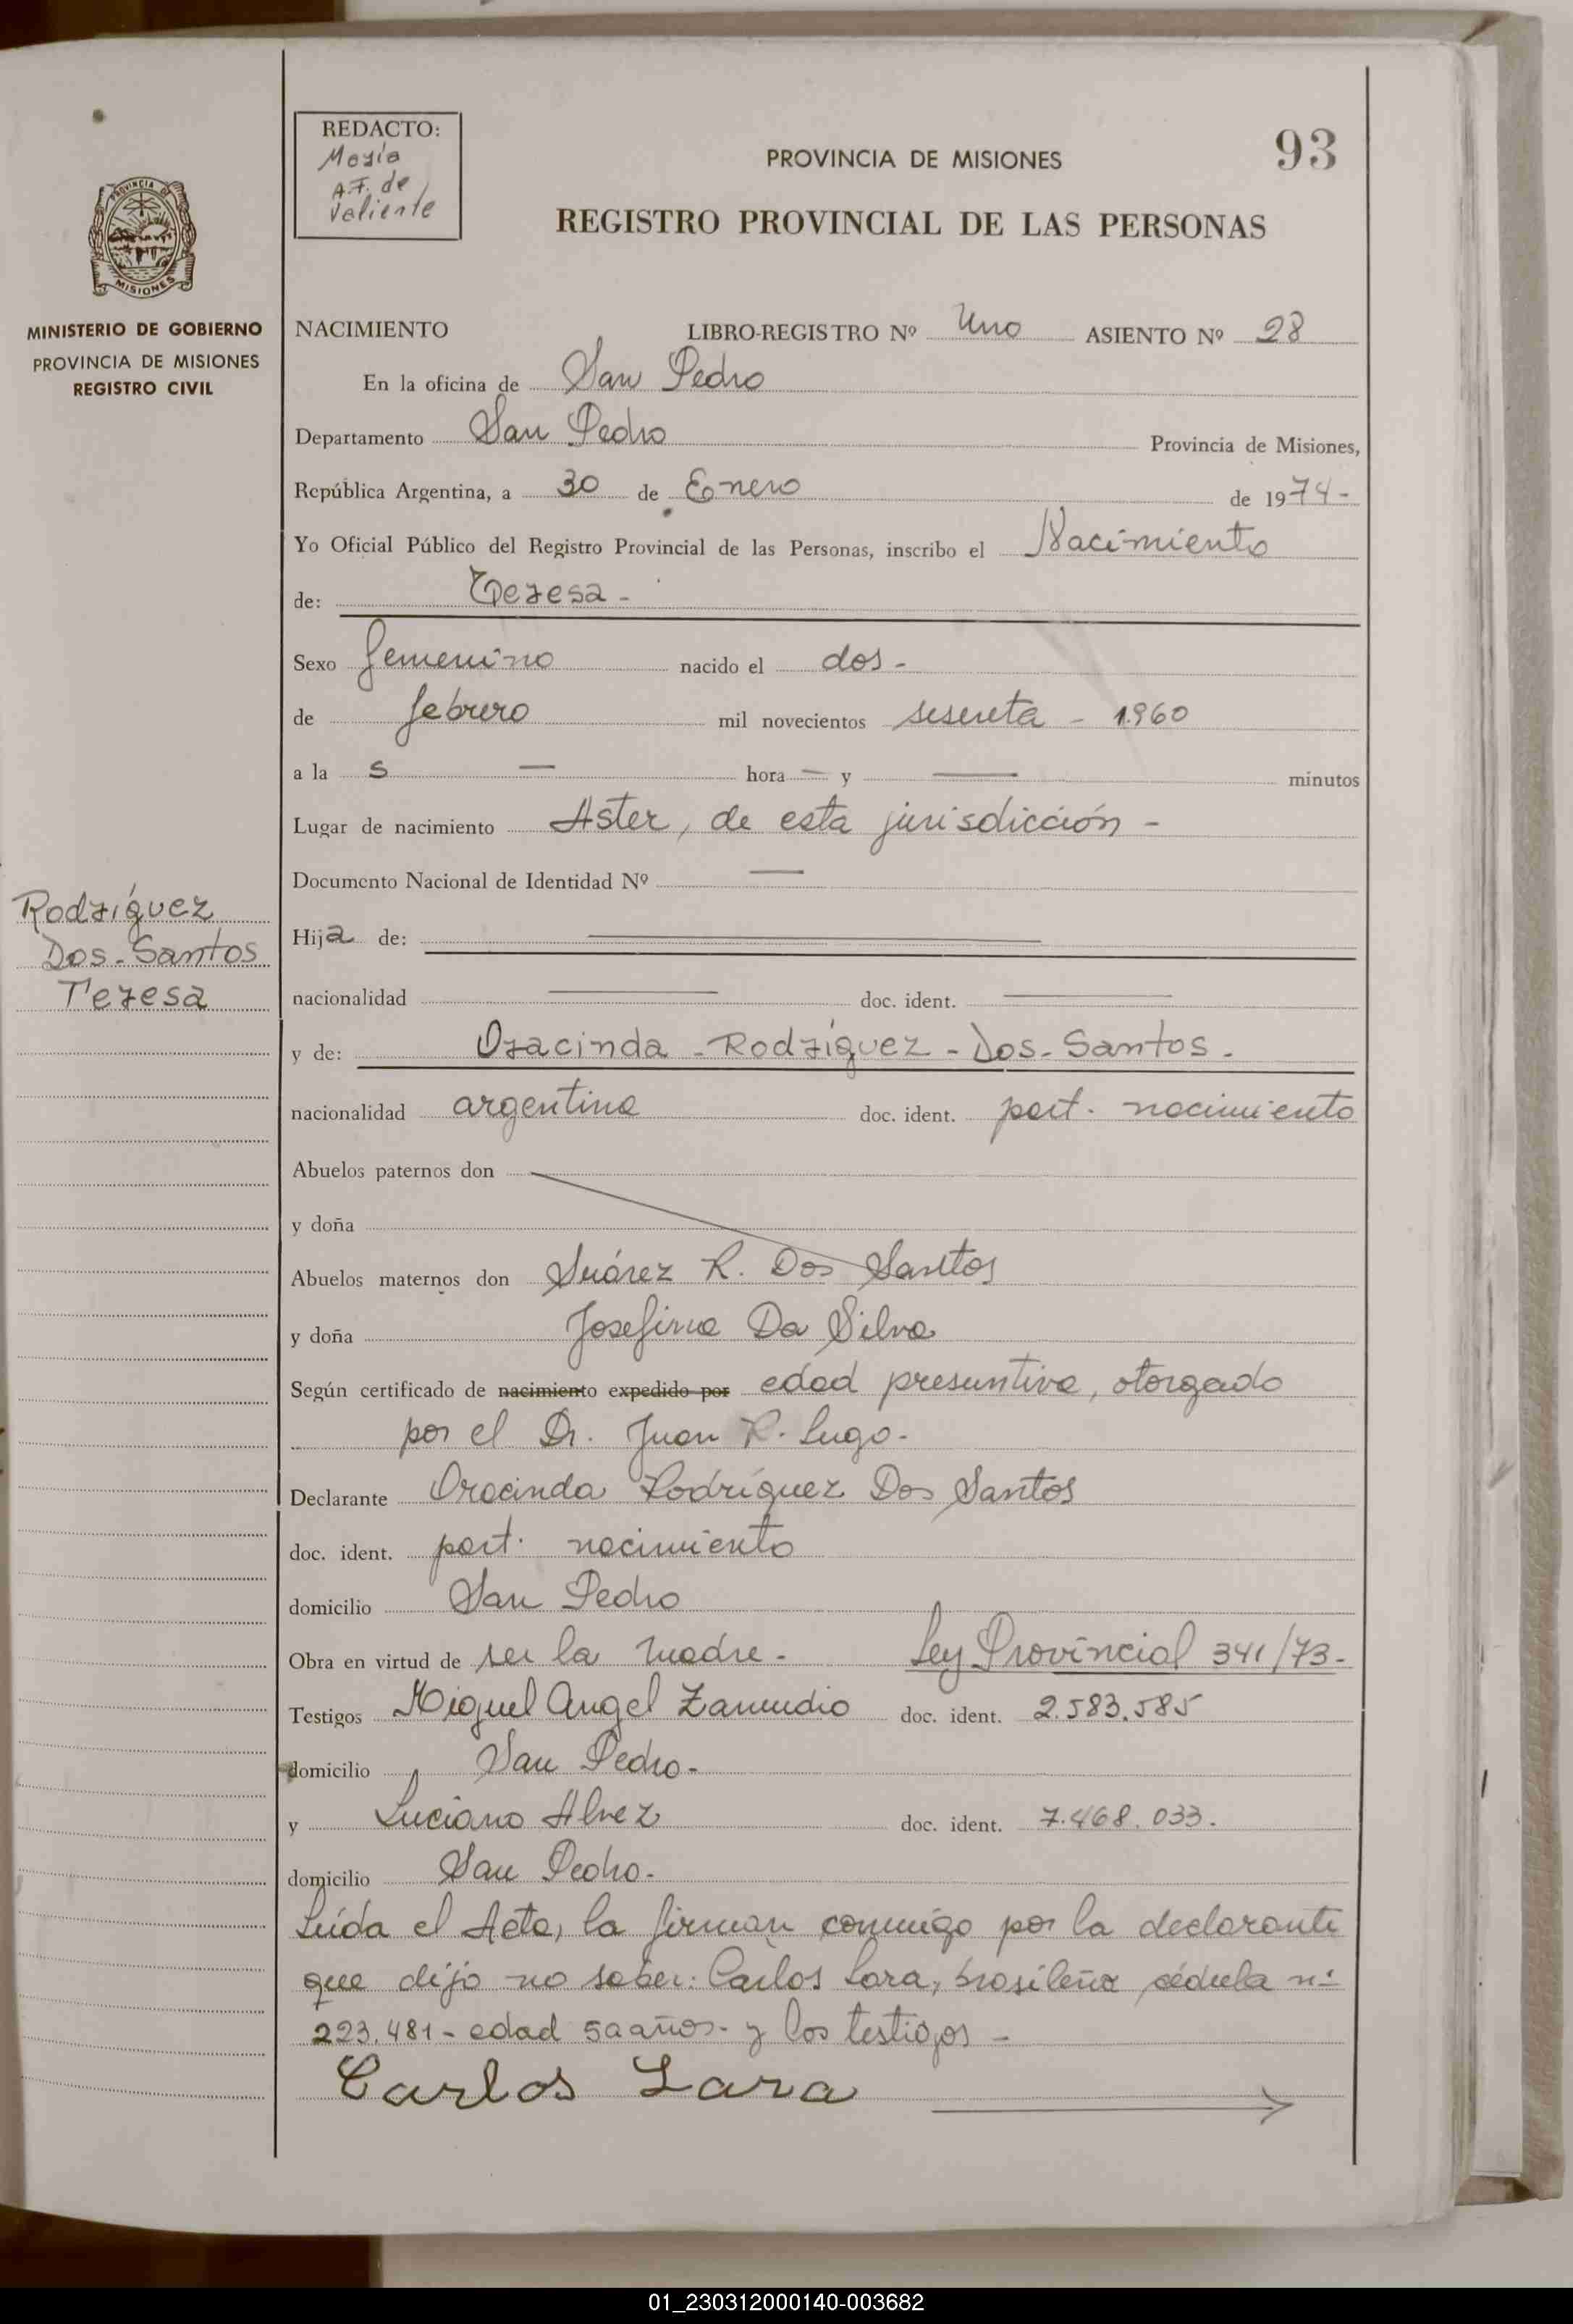 REDACTO:
María
A.F. de
Valiente
PROVINCIA DE MISIONES
93
REGISTRO PROVINCIAL DE LAS PERSONAS
PROVINCIA DE
MISIONES
MINISTERIO DE GOBIERNO
PROVINCIA DE MISIONES
REGISTRO CIVIL
NACIMIENTO LIBRO-REGISTRO Nº Uno ASIENTO Nº 28
En la oficina de San Pedro
Departamento San Pedro Provincia de Misiones,
República Argentina, a 30 de Enero de 1974-
Yo Oficial Público del Registro Provincial de las Personas, inscribo el Nacimiento
de: Teresa -
Sexo femenino nacido el dos -
de febrero mil novecientos sesenta - 1960
a la s — hora — y — minutos
Lugar de nacimiento Aster, de esta jurisdicción -
Documento Nacional de Identidad Nº —
Rodríguez
Dos-Santos
Teresa
Hija de: —
nacionalidad — doc. ident. —
y de: Oracinda - Rodríguez - Dos-Santos.
nacionalidad argentina doc. ident. part. nacimiento
Abuelos paternos don
y doña
Abuelos maternos don Suárez R. Dos Santos
y doña Josefina Da Silva
Según certificado de nacimiento expedido por edad presuntiva, otorgado
por el Dr. Juan R. Lugo.
Declarante Oracinda Rodríguez Dos Santos
doc. ident. part. nacimiento
domicilio San Pedro
Obra en virtud de ser la madre - Ley Provincial 341/73-
Testigos Miguel Angel Zamudio doc. ident. 2.583.585
domicilio San Pedro-
y Luciano Alvez doc. ident. 7.468.033.
domicilio San Pedro.
Leída el Acta, la firman conmigo por la declarante
que dijo no saber: Carlos Lara, brasileño, cédula nº
223.481 - edad 50 años - y los testigos -
Carlos Lara
01_230312000140-003682